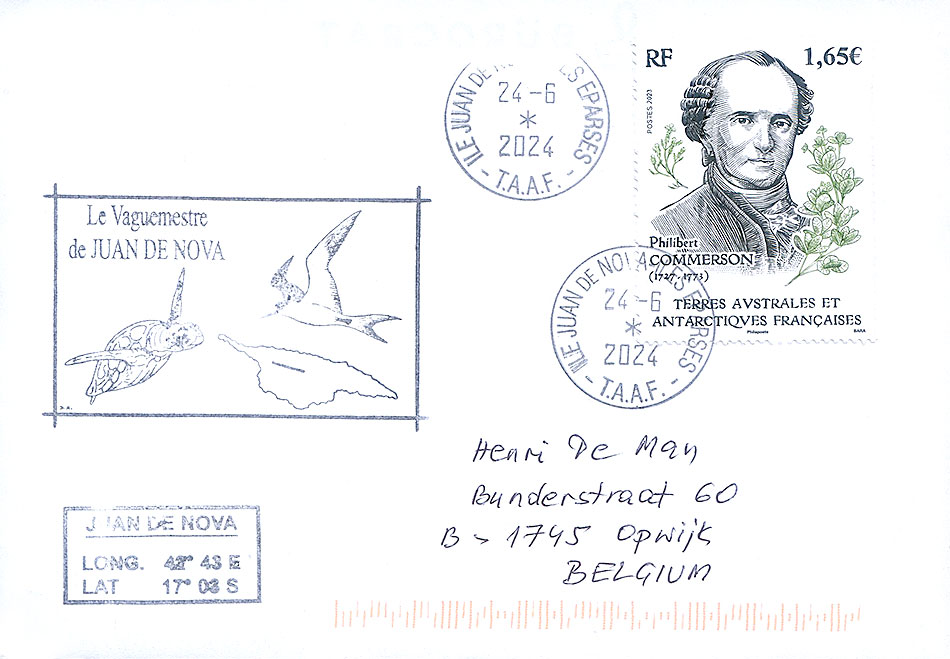 ILE JUAN DE NOVA-ILES EPARSES
24-6
*
2024
- T.A.A.F. -
RF 1,65€
POSTES 2023
Philibert
COMMERSON
(1727-1773)
TERRES AVSTRALES ET
ANTARCTIQVES FRANÇAISES
Philaposte
Le Vaguemestre
de JUAN DE NOVA
ILE JUAN DE NOVA-ILES EPARSES
24-6
*
2024
- T.A.A.F. -
Henri De Man
Bunderstraat 60
B - 1745 Opwijk
BELGIUM
JUAN DE NOVA
LONG. 42° 43 E
LAT 17° 03 S